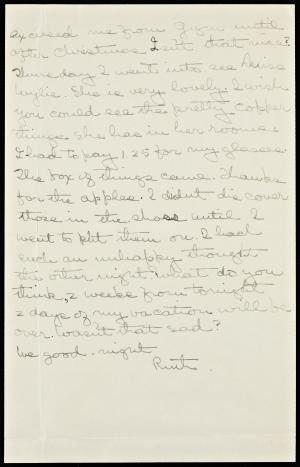 excused me from Gym until
after Christmas Isn't that nice?
Thursday I went into see Miss
Wylie. She is very lovely. I wish
you could see the pretty copper
things she has in her rooms.
I had to pay 1.25 for my glasses.
The box of things came. Thanks
for the apples. I didn't discover
those in the shoes until I
went to put them on. I had
such an unhappy thought
the other night. What do you
think, 2 weeks from tonight
2 days of my vacation will be
over. Wasn't that sad?
be good. night
Ruth.